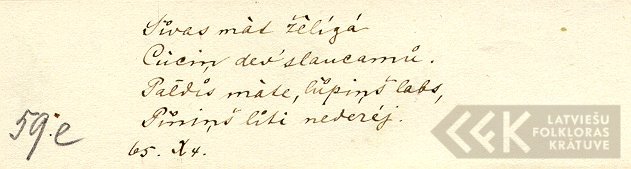 Sivas màt žēlígá
Cūcin dev' slaucamū.
Paldis māte, lūpiņš labs,
Piniņš līti nederēj.
65. X4.
59. e
LATVIEŠU
FOLKLORAS
KRĀTUVE